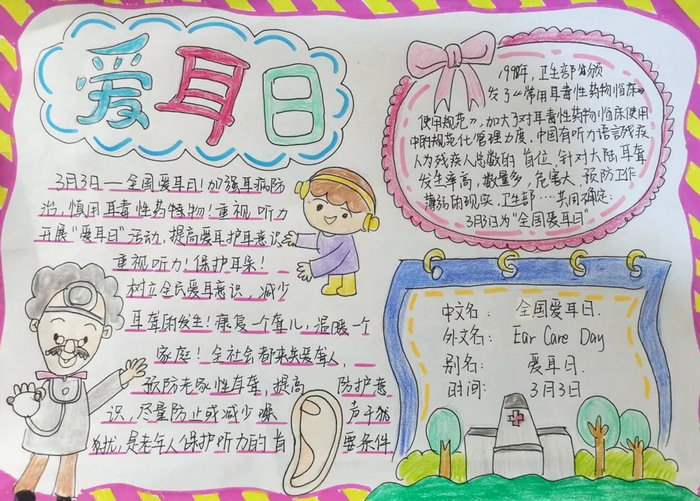 爱耳日
3月3日——全国爱耳日!加强耳病防
治,慎用耳毒性药特物!重视听力
开展“爱耳日”活动,提高爱耳护耳意识
重视听力!保护耳朵!
树立全民爱耳意识,减少
耳聋的发生!康复一个聋儿,温暖一个
家庭!全社会都来关爱聋人,
预防老家性耳聋,提高 防护意
识,尽量防止或减少噪 声干扰
,是老年人保护听力的首 要条件
1998年,卫生部颁
发了《常用耳毒性药物临床
使用规范》,加大了对耳毒性药物临床使用
中的规范化管理力度。中国有听力语言残疾
人为残疾人总数的首位,针对大陆耳聋
发生率高,数量多,危害大,预防工作
薄弱的现实,卫生部……共同确定:
3月3日为“全国爱耳日”
中文名: 全国爱耳日.
外文名: Ear Care Day
别名: 爱耳日.
时间: 3月3日